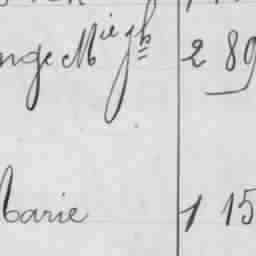 nge Mie Jh 2 89
Marie 1 15